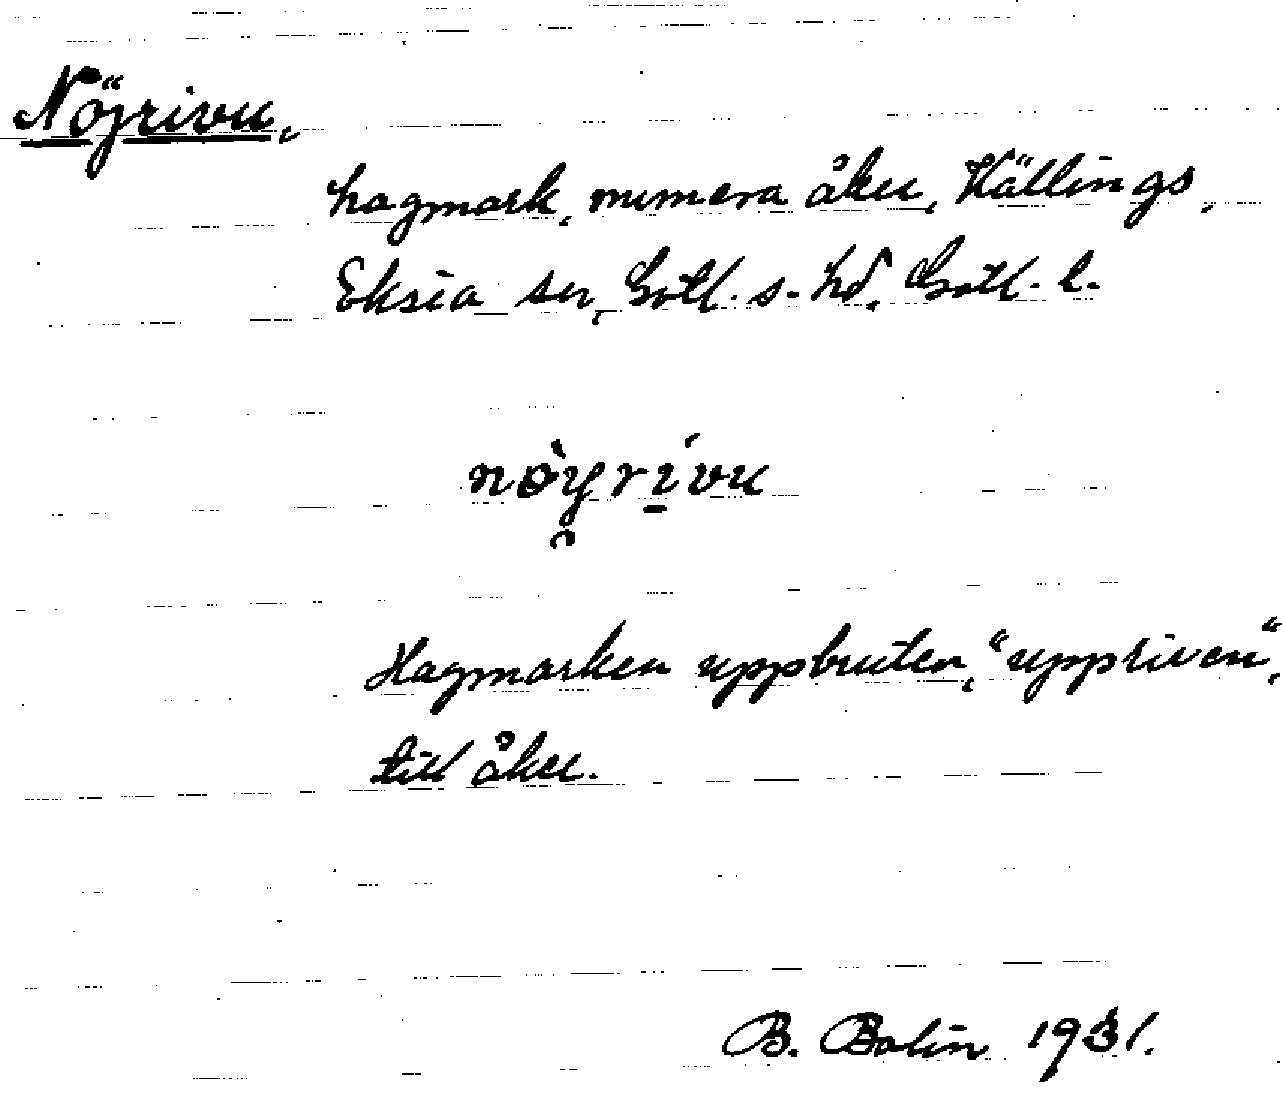 Nöjrivu,
hagmark, numera åker, Källings,
Eksta sn, Gotl. s. hd, Gotl. l.
nòy̑rívu
Hagmarken uppbruten, "uppriven",
till åker.
B. Bolin 1931.